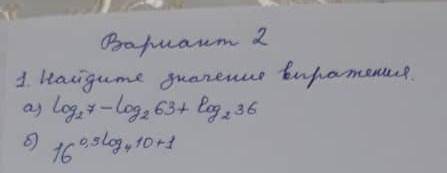 Вариант 2
1. Найдите значение выражения.
а) log₂7 – log₂63 + log₂36
б) 16^0,5log₄10+1